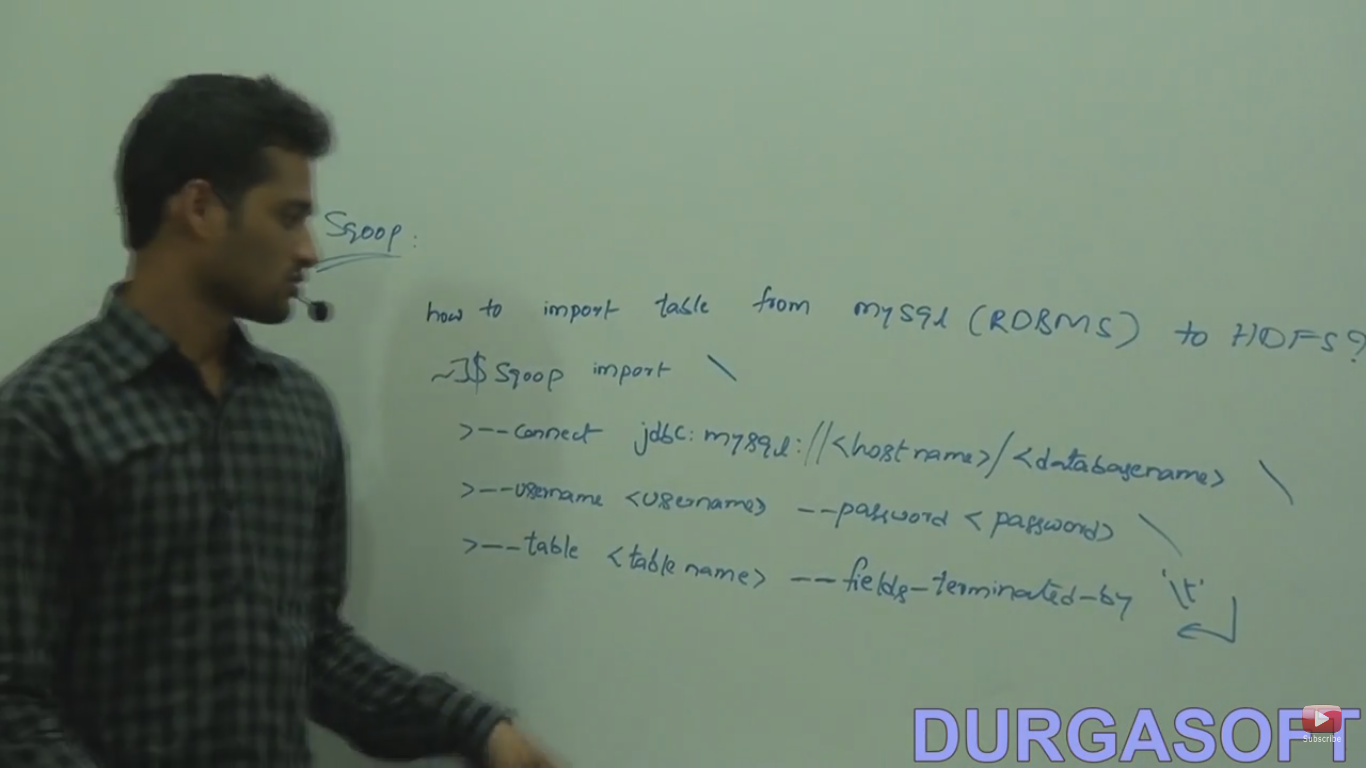 Sqoop:
how to import table from mysql (RDBMS) to HDFS?
~]$ Sqoop import \
>--connect jdbc:mysql://<hostname>/<databasename> \
>--username <username> --password <password> \
>--table <tablename> --fields-terminated-by '\t'
DURGASOFT
Subscribe